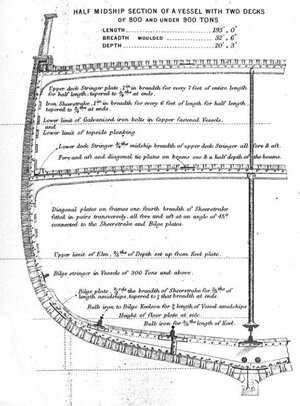 HALF MIDSHIP SECTION OF A VESSEL WITH TWO DECKS
OF 800 AND UNDER 900 TONS
LENGTH 193', 0"
BREADTH MOULDED 32', 6"
DEPTH 20', 3"
Upper deck Stringer plate, 1 in in breadth for every 7 feet of entire length
for half length, tapered to ths at ends.
Iron Sheerstrake 1 in in breadth for every 6 feet of length for half length
tapered to ths at ends.
Lower limit of Galvanized iron bolts in Copper fastened Vessels.
and
Lower limit of topside planking
Lower deck Stringer midship breadth of upper deck Stringer all fore & aft.
Fore and aft and diagonal tie plates on beams one & a half depth of the beams.
Diagonal plates on frames one fourth breadth of Sheerstrake
fitted in pairs transversely, all fore and aft at an angle of 45°
connected to the Sheerstrake and Bilge plates.
Upper limit of Elm, ths of Depth set up from Keel plate.
Bilge stringer in Vessels of 300 Tons and above.
Bilge plate, rds the breadth of Sheerstrake for ths of
length amidships, tapered to breadth at ends.
Bulb iron to Bilge Keelson for length of Vessel amidships
Height of floor plate at side
Bulb iron for ths length of Keel.